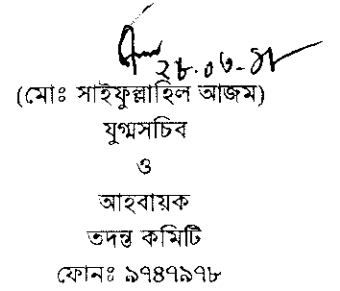 ২৮.০৬-১৮
(মোঃ সাইফুল্লাহিল আজম)
যুগ্মসচিব
ও
আহবায়ক
তদন্ত কমিটি
ফোনঃ ৯৭৪৭৯৭৮